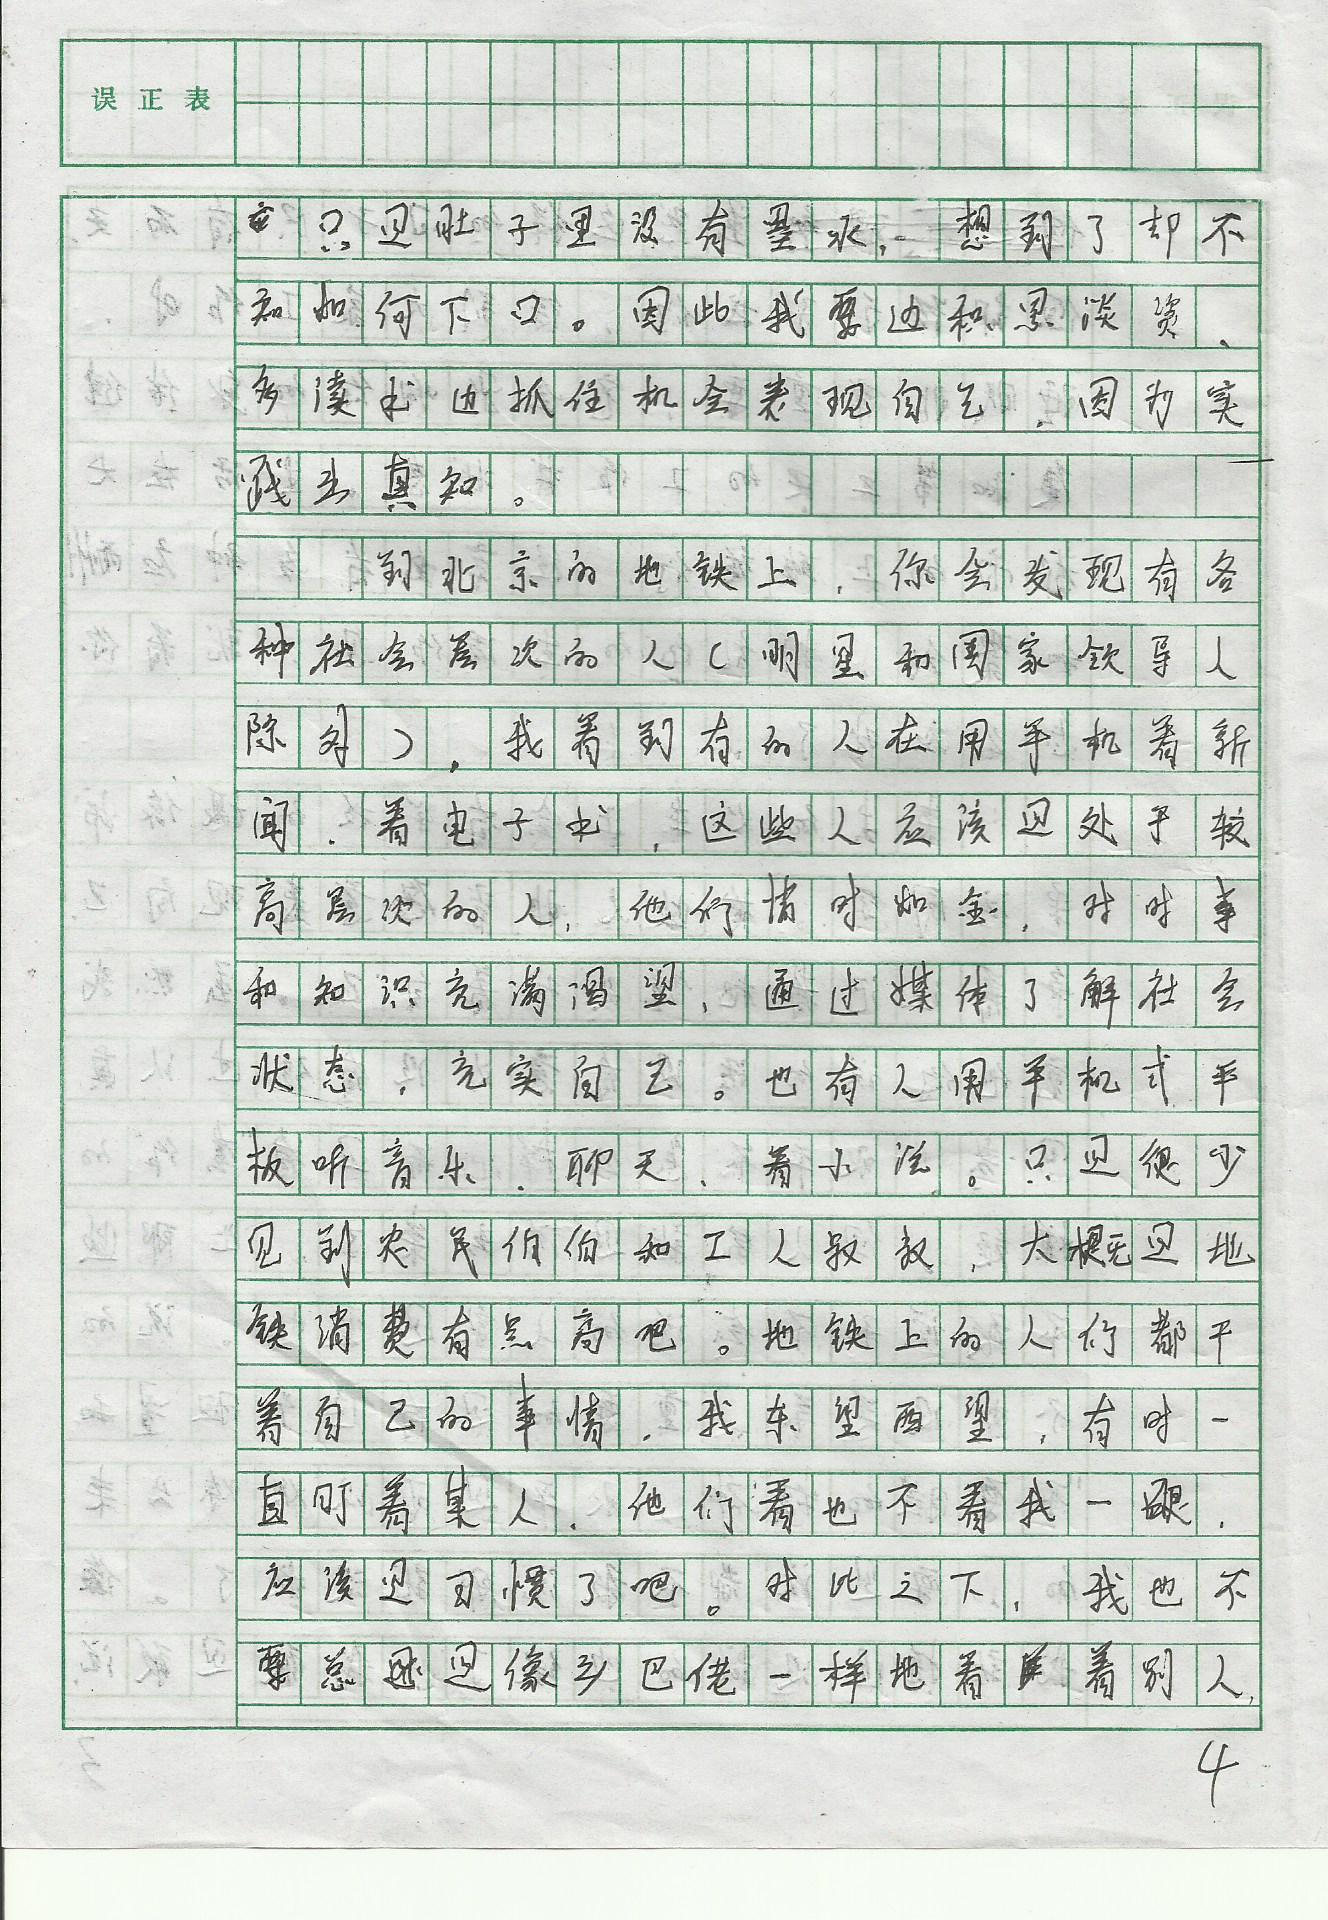 误正表
只是肚子里没有墨水，一想到了却不
知如何下口。因此我要边积累谈资、
多读书边抓住机会表现自己，因为实
践出真知。
到北京的地铁上，你会发现有各
种社会层次的人（明星和国家领导人
除外），我看到有的人在用手机看新
闻、看电子书，这些人应该是处于较
高层次的人，他们惜时如金，对时事
和知识充满渴望，通过媒体了解社会
状态，充实自己。也有人用手机或平
板听音乐、聊天、看小说。只是很少
见到农民伯伯和工人叔叔，大概是地
铁消费有点高吧。地铁上的人们都干
着自己的事情，我东望西望，有时一
直盯着某人，他们看也不看我一眼，
应该是习惯了吧。对比之下，我也不
要总是像乡巴佬一样地看着别人，
4